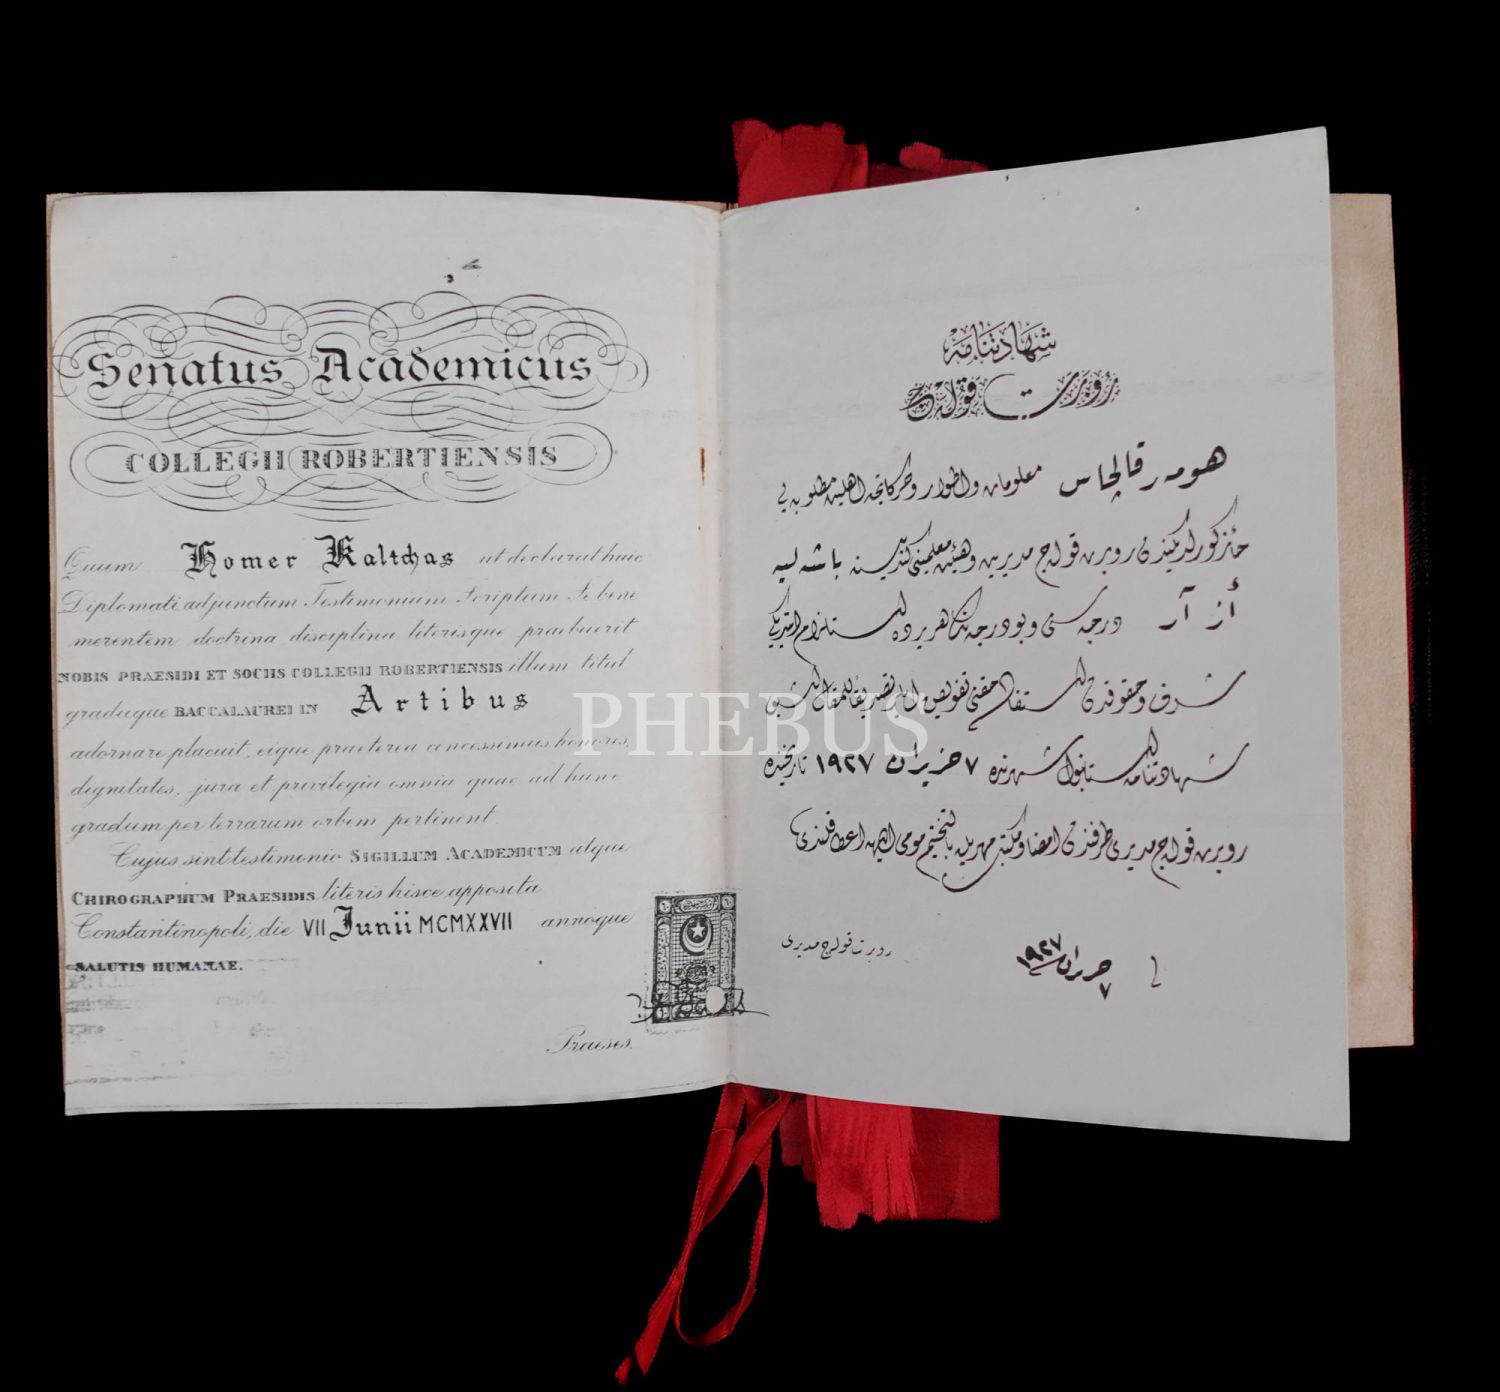 Senatus Academicus
COLLEGII ROBERTIENSIS
Quum Homer Kaltchas ut declarat huic
Diplomati adjunctum Testimonium Scriptum Se bene
merentem doctrina disciplina literisque praebuerit
NOBIS PRAESIDI ET SOCIIS COLLEGII ROBERTIENSIS illum titul
graduque BACCALAUREI IN Artibus
adornare placuit, eique praeterea concessimus honores,
dignitates, jura et privilegia omnia quae ad hunc
gradum per terrarum orbem pertinent.
Cujus sint testimonio SIGILLUM ACADEMICUM atque
CHIROGRAPHUM PRAESIDIS literis hisce apposita
Constantinopoli, die VII Junii MCMXXVII annoque
SALUTIS HUMANAE.
Praeses.
شهادتنامه
روبرت قولج
هومەر قالچاس معلومات واطوار وحركاتجه اهليت مطلوبه يى
حائز روبرت قولج مديريت وهيئت معلميى كنديسنه باشه ليه
أز آر درجه سنى وبو درجه نك هر يرده استلزام ايتديكى
شرف وحقوقدن
شهادتنامه استانبول شهرنده ٧ حزيران ١٩٢٧ تاريخنده
روبرت قولج مديرى طرفندن امضا ومكتب مهريله بالتختيم مومى اليه اعطا قلندى
روبرت قولج مديرى
٧ حزيران ١٩٢٧
PHEBUS